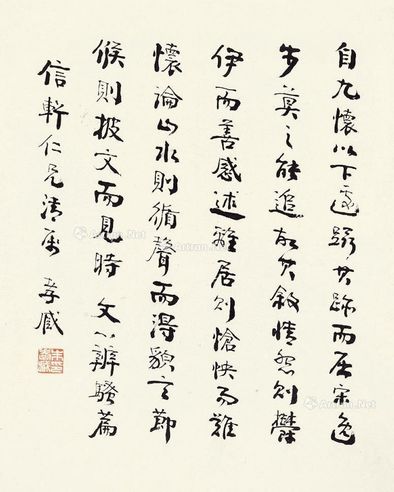 自九懷以下遽躡其跡而屈宋逸
步莫之能追故其敘情怨則鬱
伊而善感述離居則愴怏而難
懷論山水則循聲而得貌言節
候則披文而見時 文心辨騷篇
信軒仁兄清屬 孝臧